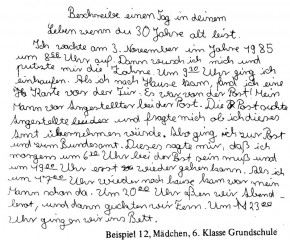 Beschreibe einen Tag in deinem
Leben wenn du 30 Jahre alt bist.
Ich wachte am 3. November im Jahre 1985
um 8 Uhr auf. Dann wusch ich mich und
putzte mir die Zähne. Um 9 Uhr ging ich
einkaufen. Als ich nach Hause kam, fand ich eine
Karte vor der Tür. Es war von der Post! Mein
Mann war Angestellter bei der Post. Die Post suchte
Angestellte und fragte mich ob ich dieses
Amt übernehmen würde. Also ging ich zur Post
und zum Bundesamt. Dieses sagte mir, daß ich
morgens um 6 Uhr bei der Post sein muß und
um Uhr erst wieder gehen kann. Als ich
um Uhr wieder nach Hause kam war mein
Mann schon da. Um 20 Uhr aßen wir Abend
brot, und dann guckten wir Fern. Um 23
Uhr gingen wir ins Bett.
Beispiel 12, Mädchen, 6. Klasse Grundschule